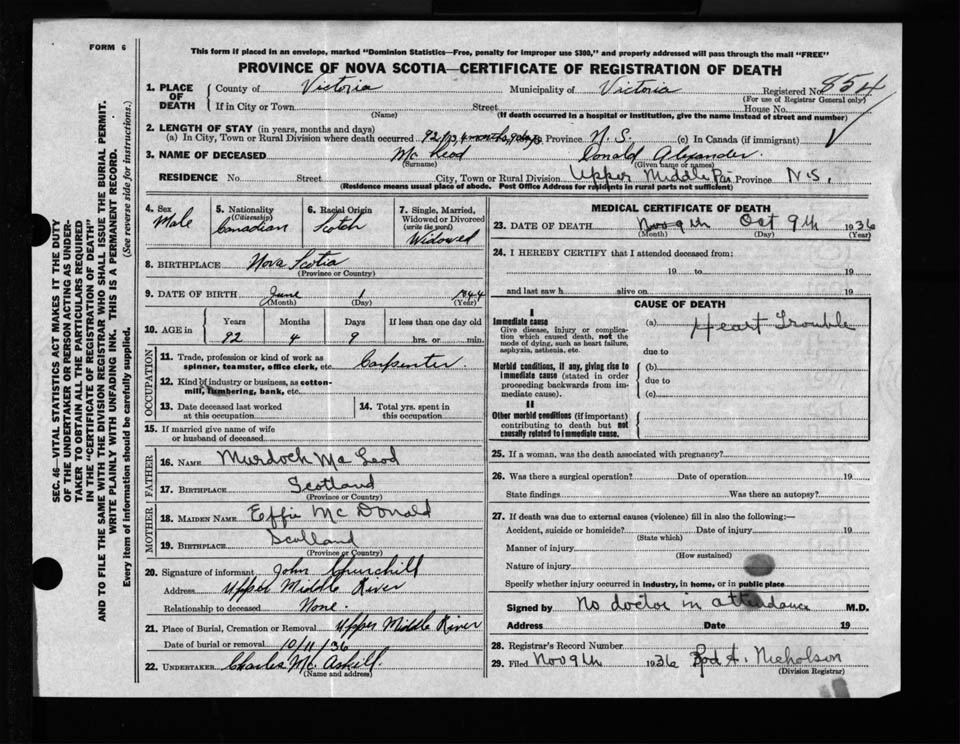 FORM 6
This form if placed in an envelope, marked "Dominion Statistics—Free, penalty for improper use $300," and properly addressed will pass through the mail "FREE"
PROVINCE OF NOVA SCOTIA—CERTIFICATE OF REGISTRATION OF DEATH
SEC. 46—VITAL STATISTICS ACT MAKES IT THE DUTY
OF THE UNDERTAKER OR PERSON ACTING AS UNDER-
TAKER TO OBTAIN ALL THE PARTICULARS REQUIRED
IN THE "CERTIFICATE OF REGISTRATION OF DEATH"
AND TO FILE THE SAME WITH THE DIVISION REGISTRAR WHO SHALL ISSUE THE BURIAL PERMIT.
WRITE PLAINLY WITH UNFADING INK. THIS IS A PERMANENT RECORD.
Every item of information should be carefully supplied. (See reverse side for instructions.)
1. PLACE OF DEATH County of Victoria Municipality of Victoria Registered No. 854
(For use of Registrar General only)
If in City or Town Street House No.
(Name) (If death occurred in a hospital or institution, give the name instead of street and number)
2. LENGTH OF STAY (in years, months and days)
(a) In City, Town or Rural Division where death occurred 92 yrs 4 months, 9 days Province N.S. (c) In Canada (if immigrant)
3. NAME OF DECEASED Mc Leod Donald Alexander.
(Surname) (Given name or names)
RESIDENCE No. Street City, Town or Rural Division Upper Middle Riv Province N.S.
(Residence means usual place of abode. Post Office Address for residents in rural parts not sufficient)
4. Sex
Male
5. Nationality
(Citizenship)
Canadian
6. Racial Origin
Scotch
7. Single, Married,
Widowed or Divorced
(write the word)
Widowed
8. BIRTHPLACE Nova Scotia
(Province or Country)
9. DATE OF BIRTH June 1 1844
(Month) (Day) (Year)
10. AGE in Years Months Days If less than one day old
92 4 9 hrs. or min.
OCCUPATION
11. Trade, profession or kind of work as
spinner, teamster, office clerk, etc. Carpenter.
12. Kind of industry or business, as cotton-
mill, lumbering, bank, etc.
13. Date deceased last worked
at this occupation
14. Total yrs. spent in
this occupation
15. If married give name of wife
or husband of deceased
FATHER
16. NAME Murdoch Mc Leod
17. BIRTHPLACE Scotland
(Province or Country)
MOTHER
18. MAIDEN NAME Effie McDonald
19. BIRTHPLACE Scotland
(Province or Country)
20. Signature of informant John Churchill
Address Upper Middle River
Relationship to deceased None.
21. Place of Burial, Cremation or Removal Upper Middle River
Date of burial or removal 10/11/36
22. UNDERTAKER Charles Mc Askill.
(Name and address)
MEDICAL CERTIFICATE OF DEATH
23. DATE OF DEATH Nov 9th Oct 9th 1936
(Month) (Day) (Year)
24. I HEREBY CERTIFY that I attended deceased from:
19 to 19
and last saw h alive on 19
CAUSE OF DEATH
I
Immediate cause
Give disease, injury or complica-
tion which caused death, not the
mode of dying, such as heart failure,
asphyxia, asthenia, etc.
(a) Heart Trouble
due to
Morbid conditions, if any, giving rise to
immediate cause (stated in order
proceeding backwards from im-
mediate cause).
(b)
due to
(c)
II
Other morbid conditions (if important)
contributing to death but not
causally related to immediate cause.
25. If a woman, was the death associated with pregnancy?
26. Was there a surgical operation? Date of operation 19
State findings Was there an autopsy?
27. If death was due to external causes (violence) fill in also the following:—
Accident, suicide or homicide? Date of injury 19
(State which)
Manner of injury
(How sustained)
Nature of injury
Specify whether injury occurred in industry, in home, or in public place
Signed by No doctor in attendance M.D.
Address Date 19
28. Registrar's Record Number
29. Filed Nov 9th 1936 Rod A. Nicholson
(Division Registrar)